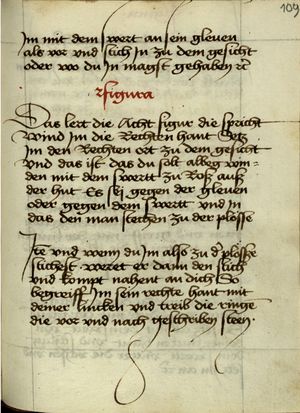 109
Im mit dem swert an sein gleuen
als vor und stich In zu dem gesicht
oder wo du In magst gehaben etc
Figura
Das lert die Acht figur die spricht
Wind Im die Rechten hant Setz
Im den Rechten ort zu dem gesicht
Und das ist das du solt albeg win-
den mit dem swertt zu Roß auß
der hut Es sej gegen der gleuen
oder gegen dem swertt und in
das den man stechen zu der plösse
Ite und wenn du Im also zu d plösse
stichest weret er dann den stich
und kompt nahent an dich So
begreiff Im sein rechte hant mit
deiner lincken und treib die ringe
die vor und nach geschriben steen